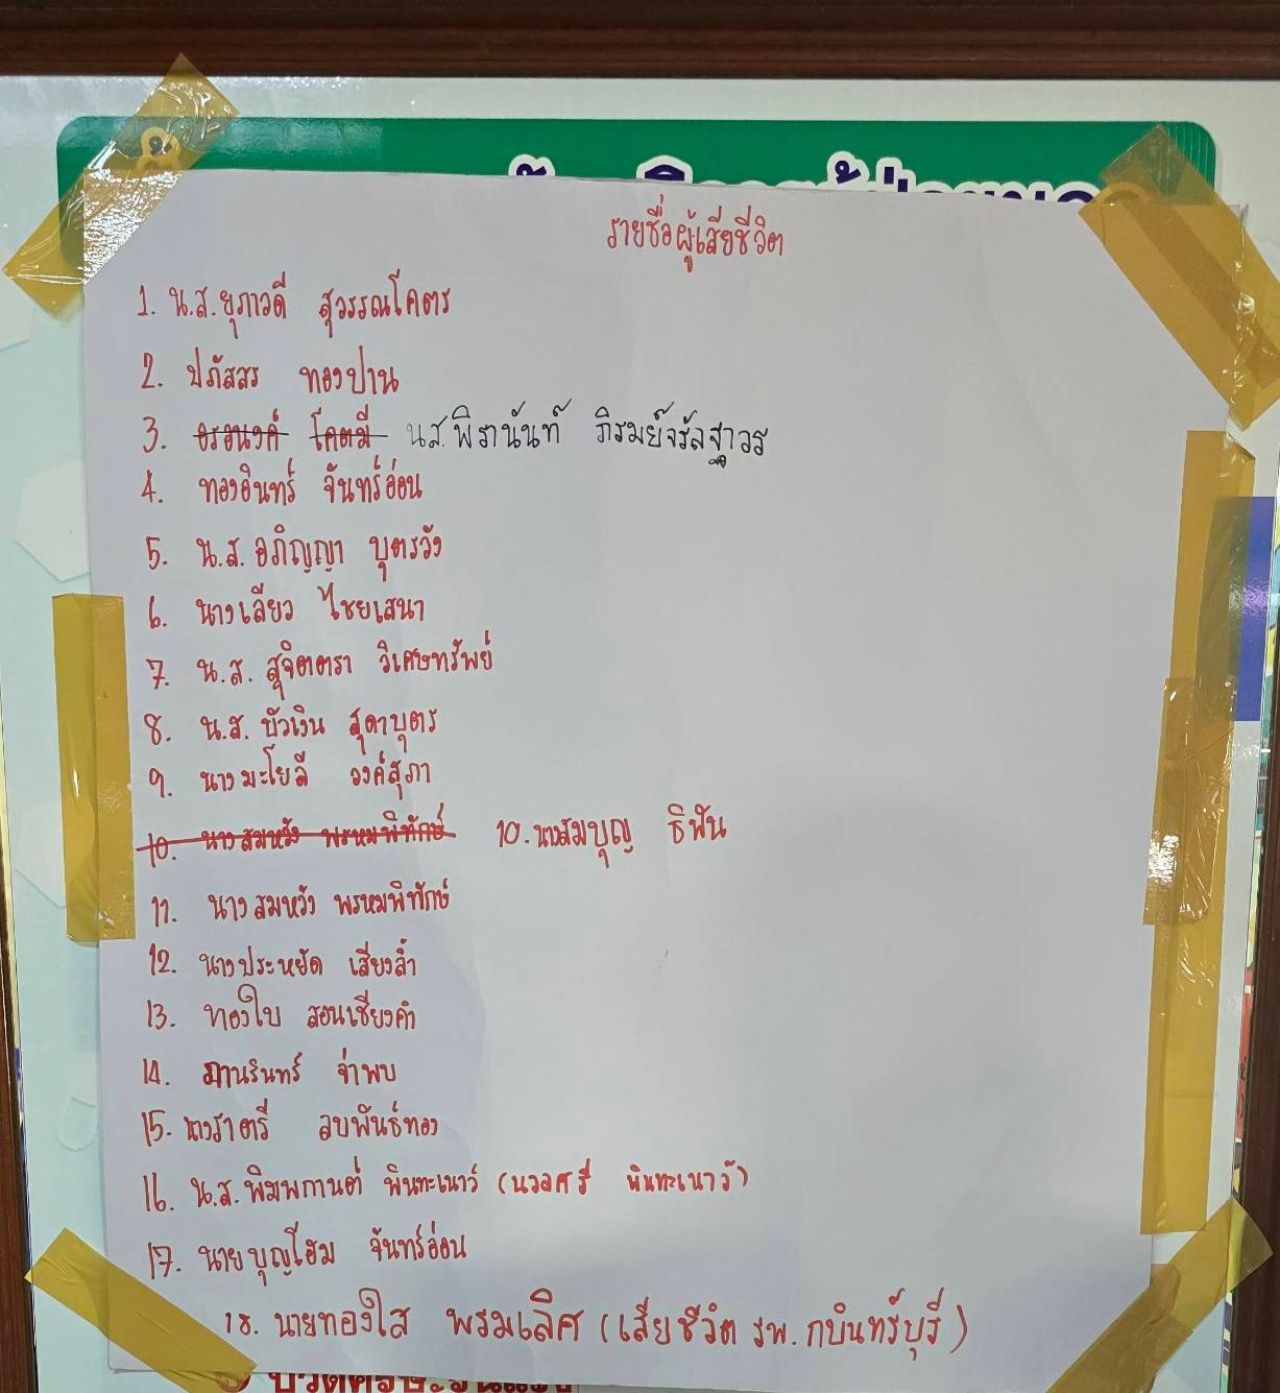 รายชื่อผู้เสียชีวิต
1. น.ส.ยุภาวดี สุวรรณโคตร
2. ปภัสสร ทองปาน
3. อรอนงค์ โคตมี น.ส.พิรานันท์ ภิรมย์จรัลฐาวร
4. ทองอินทร์ จันทร์อ่อน
5. น.ส.อภิญญา บุตรวัง
6. นางเลียว ไชยเสนา
7. น.ส. สุจิตตรา วิเศษทรัพย์
8. น.ส. บัวเงิน สุดาบุตร
9. นางมะโยลี องค์สุภา
10. นางสมหวัง พรหมพิทักษ์ 10. นางสมบุญ ธิฟัน
11. นางสมหวัง พรหมพิทักษ์
12. นางประหยัด เสียงล้ำ
13. ทองใบ สอนเชียงคำ
14. ภานรินทร์ จ่าพบ
15. นางราตรี ลบพันธ์ทอง
16. น.ส.พิมพกานต์ พินทะเนาว์ (นวลศรี พินทะเนาว์)
17. นายบุญโฮม จันทร์อ่อน
18. นายทองใส พรมเลิศ (เสียชีวิต รพ.กบินทร์บุรี)